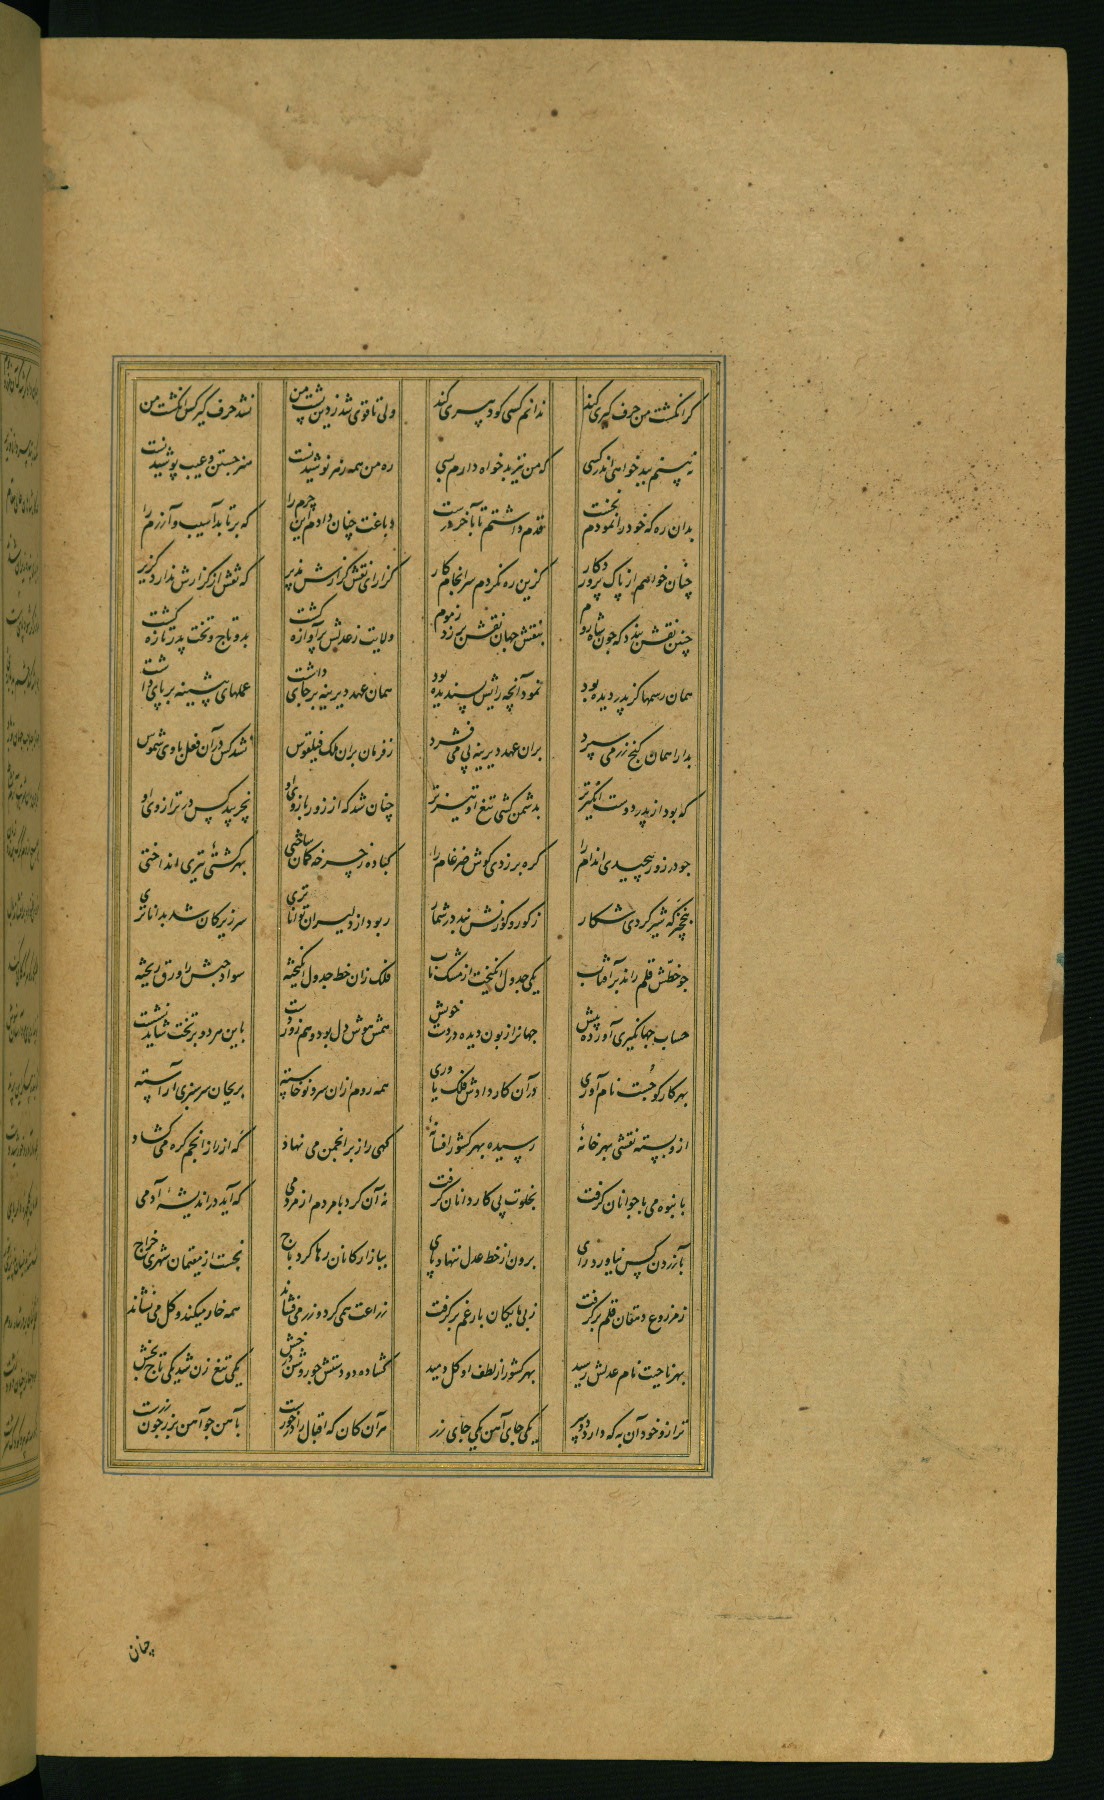 گر انگشت من حرف گیری کند ندانم کسی کو دبیری کند ولی تا قوی شد ز دین پشت من نشد حرف گیر کس انگشت من
نه بینم ببد خواهی اندر کسی که من نیز بدخواه دارم بسی ره من همه زهر نوشیدنست هنر جستن و عیب پوشیدنست
بدان ره که خود را نمودم نخست قدم داشتم تا بآخر درست دباغت چنان دادم این چرم را که برتابد آسیب و آزرم را
چنان خواهم از پاک پروردکار کزین ره نکردم سرانجام کار گزارای نقش گزارش پذیر که نقش از گزارش ندارد گزیر
چنین نقش بندد که چون شاه روم بنقش جهان نقش برزد ز موم ولایت ز عدلش پرآوازه گشت بدو تاج و تخت پدر تازه گشت
همان رسمها کز پدر دیده بود نمود آنچه رایش پسندیده بود همان عهد دیرینه بر جای داشت عملهای پیشینه بر پای داشت
بدارا همان گنج زر می سپرد بران عهد دیرینه پی می فشرد ز فرمان بران ملک فیلقوس نشد کس در آن فعل باوی شموس
که بود از پدر دوست انگیزتر بدشمن کشی تیغ او تیزتر چنان شد که از زور بازوی او نچربید کس در ترازوی او
چو در زور پیچیدی اندام را گره برزدی گوش ضرغام را کباده ز چرخه کمان ساختی بهر کشتی تیری انداختی
بنخچیر گه شیر کردی شکار ز گور و گوزنش نبد در شمار ربود از دلیران توانا تری سر زیرکان شد بدانا تری
چو خطّش قلم راند بر آفتاب یکی جدول انگیخت از مشک ناب فلک زان خط جدول انگیخته سواد حبش را ورق ریخته
حساب جهانگیری آورده پیش جهانرا زبون دیده در دست خویش همش هوش دل بود و هم زور دست باین هر دو بر تخت شاید نشست
بهر کار کو جُست نام آوری در آن کار دادش فلک یاوری همه روم ازان سرو نوخاسته بریحان سرسبزی آراسته
ازو بسته نقشی بهر خانهٔ رسیده بهر کشور افسانهٔ گهی راز بر انجمن می نهاد گه از راز انجم گره می گشاد
بانبوه می با جوانان گرفت بخلوت پی کاردانان گرفت نه آن کرد با مردم از مردمی که آید در اندیشهٔ آدمی
بآزردن کس نیاورد رای برون از خط عدل ننهاد پای ببازارگانان رها کرد باج نجست از مقیمان شهری خراج
ز مزروع دهقان قلم برگرفت ز بی مایگان بار غم برگرفت زراعت همی کرد و زر می فشاند همه خار میکند و گل می نشاند
بهر ناحیت نام عدلش رسید بهر کشور از لطف او گل دمید گشاده دو دستش چو روشن درخش یکی تیغ زن شد یکی تاج بخش
ترازو خود آن به که دارد دو سر یکی جای آهن یکی جای زر هر آن کان که اقبال را درخورست بآهن چو آهن بزر چون زرست
چنان